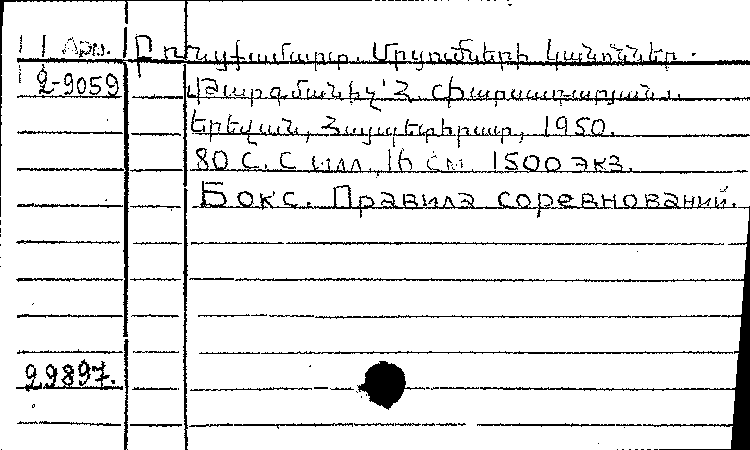 Арм. Բռնցքամարտ. Մրցումների կանոններ.
2-9059 Թարգմանիչ՝ Հ.
Երեվան, Հայպետհրատ, 1950.
80 с. с илл., 16 см. 1500 экз.
Бокс. Правила соревнований.
29897.